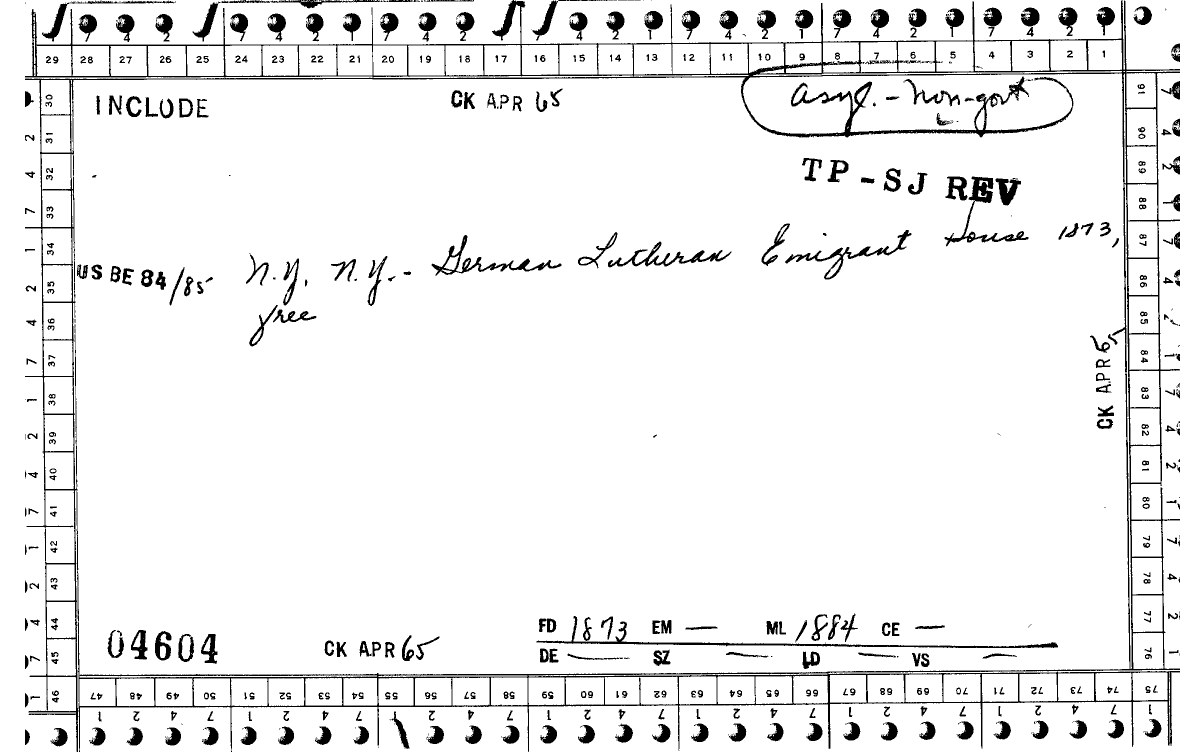 29 28 27 26 25 24 23 22 21 20 19 18 17 16 15 14 13 12 11 10 9 8 7 6 5 4 3 2 1
INCLUDE
CK APR 65
asyl. - non-govt
TP - SJ REV
US BE 84/85 N.Y., N.Y. - German Lutheran Emigrant House 1873,
free
CK APR 65
04604
CK APR 65
FD 1873 EM — ML 1884 CE —
DE — SZ — LD — VS —
30 31 32 33 34 35 36 37 38 39 40 41 42 43 44 45 46
91 90 89 88 87 86 85 84 83 82 81 80 79 78 77 76
47 48 49 50 51 52 53 54 55 56 57 58 59 60 61 62 63 64 65 66 67 68 69 70 71 72 73 74 75